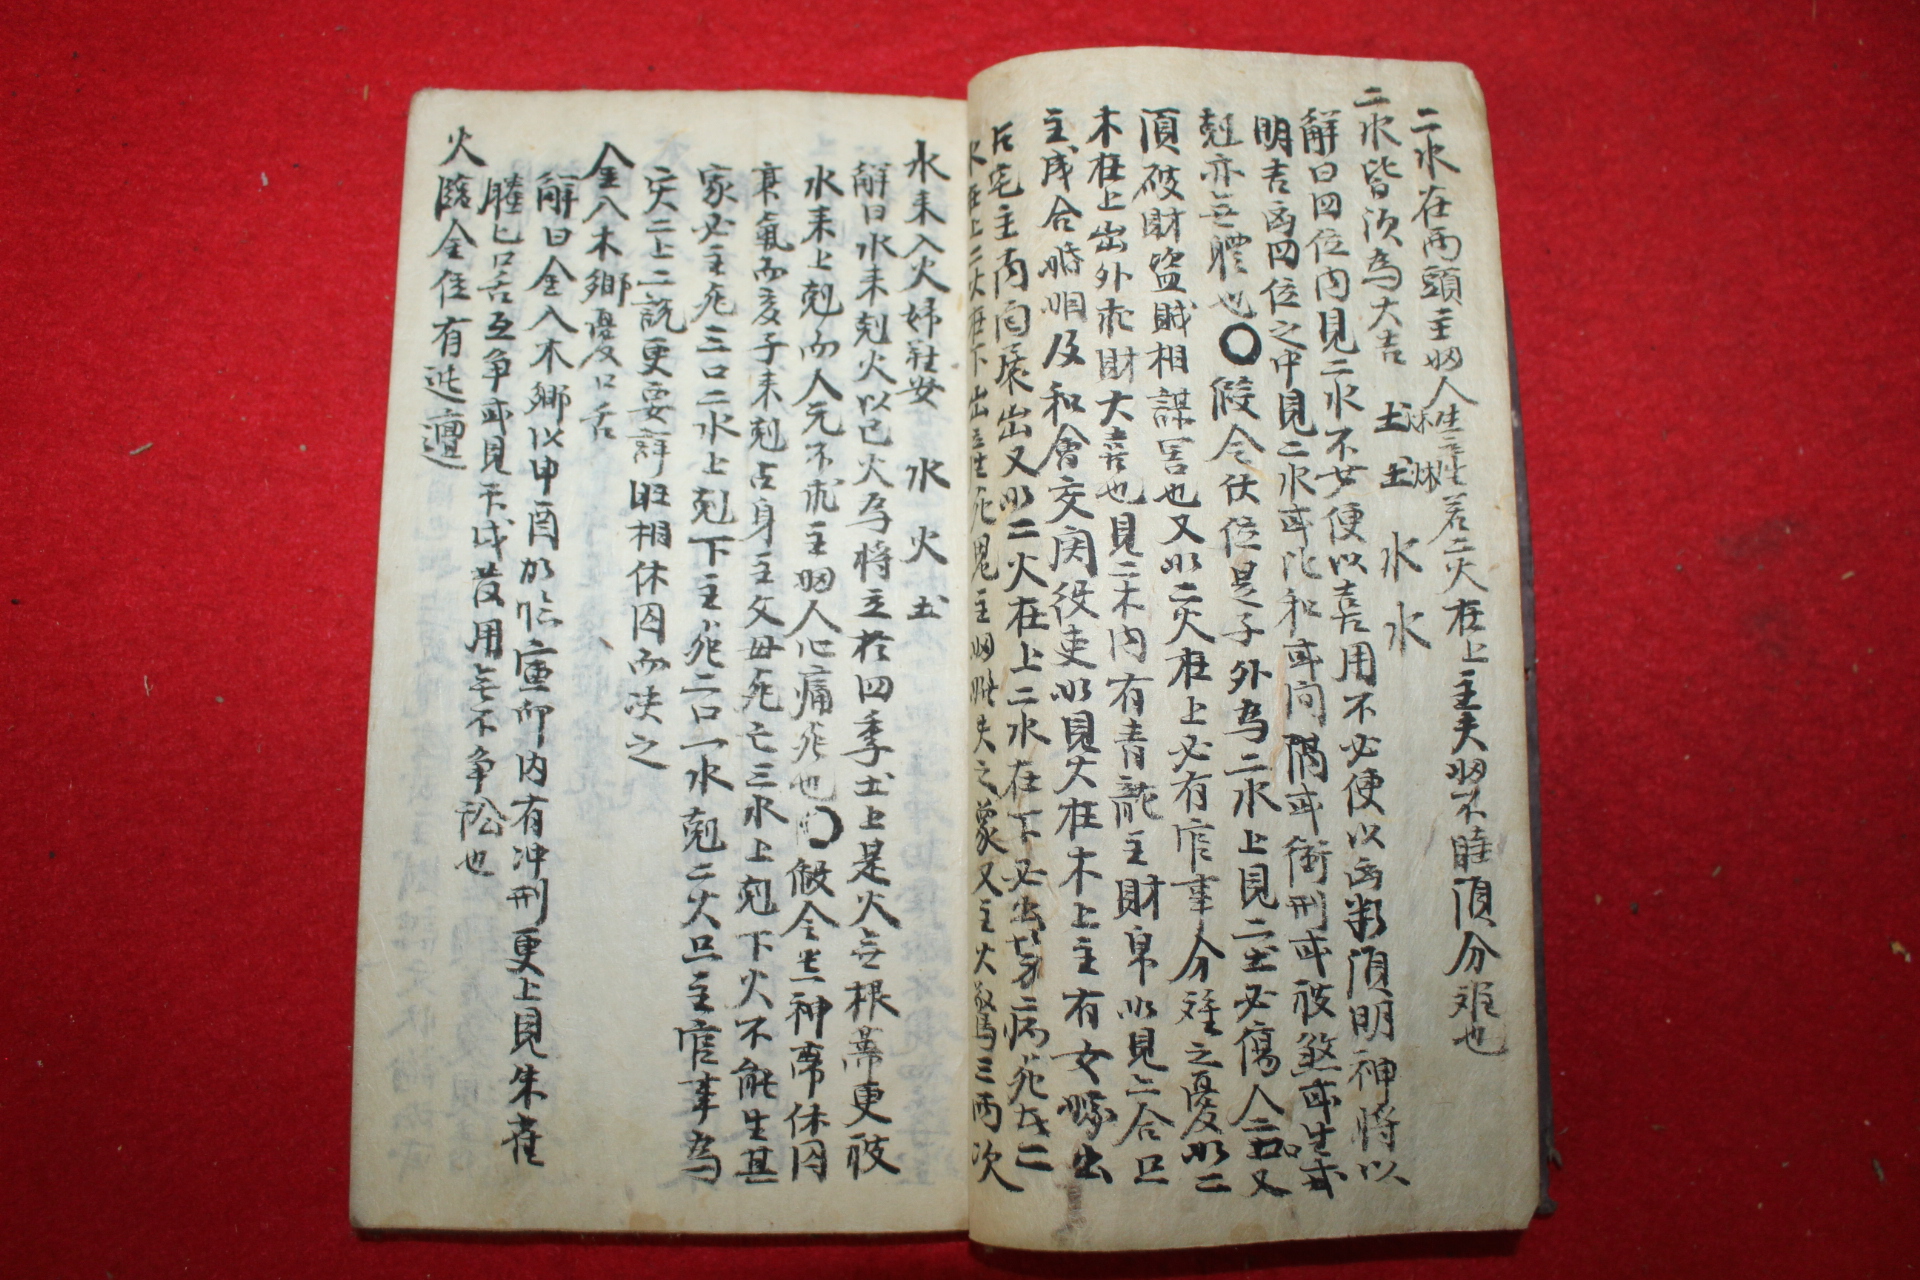 二水在兩頭主婦人生二姓若二火在上主夫婦不睦須分死也
二水皆須為大吉 土土 水水
解曰四位內見二水不女便以吉用不必便以凶斷須明神將以
明吉凶四位之中見二水或比和或間隔或衝刑或被煞或生或
剋亦無體也○假令伏位是子外為二水上見二土必傷人二口又
須破財盜賊相謀害也又如二火在上必有官事分離之憂如二
木在上出外求財大喜也見二木內有青龍主財帛如見二合只
主成合婚姻及和會交関役吏如見火在木上主有女嫁出
占宅主內向展出又如二火在上二水在下必出勞病死亡二
火在上二火在下出 生死鬼主婦 失之象又主火驚三兩次
水來入火婦難安 水火土
解曰水來剋火以巳火為將主於四季土上是火無根蒂更被
水來上剋而人元不求主婦人心痛死也○假令土神帶休囚
衰氣而友子來剋占身主父母死亡三水上剋下火不能生其
家必主死三口二水上剋下主死二口一水剋二火只主官事為
災二上二說更要詳旺相休囚而決之
金入木鄉憂口舌
解曰金入木鄉以申酉加臨寅卯內有冲刑更上見朱雀
騰巳口舌互爭或見天戌發用無不爭訟也
火臨金位有迍邅